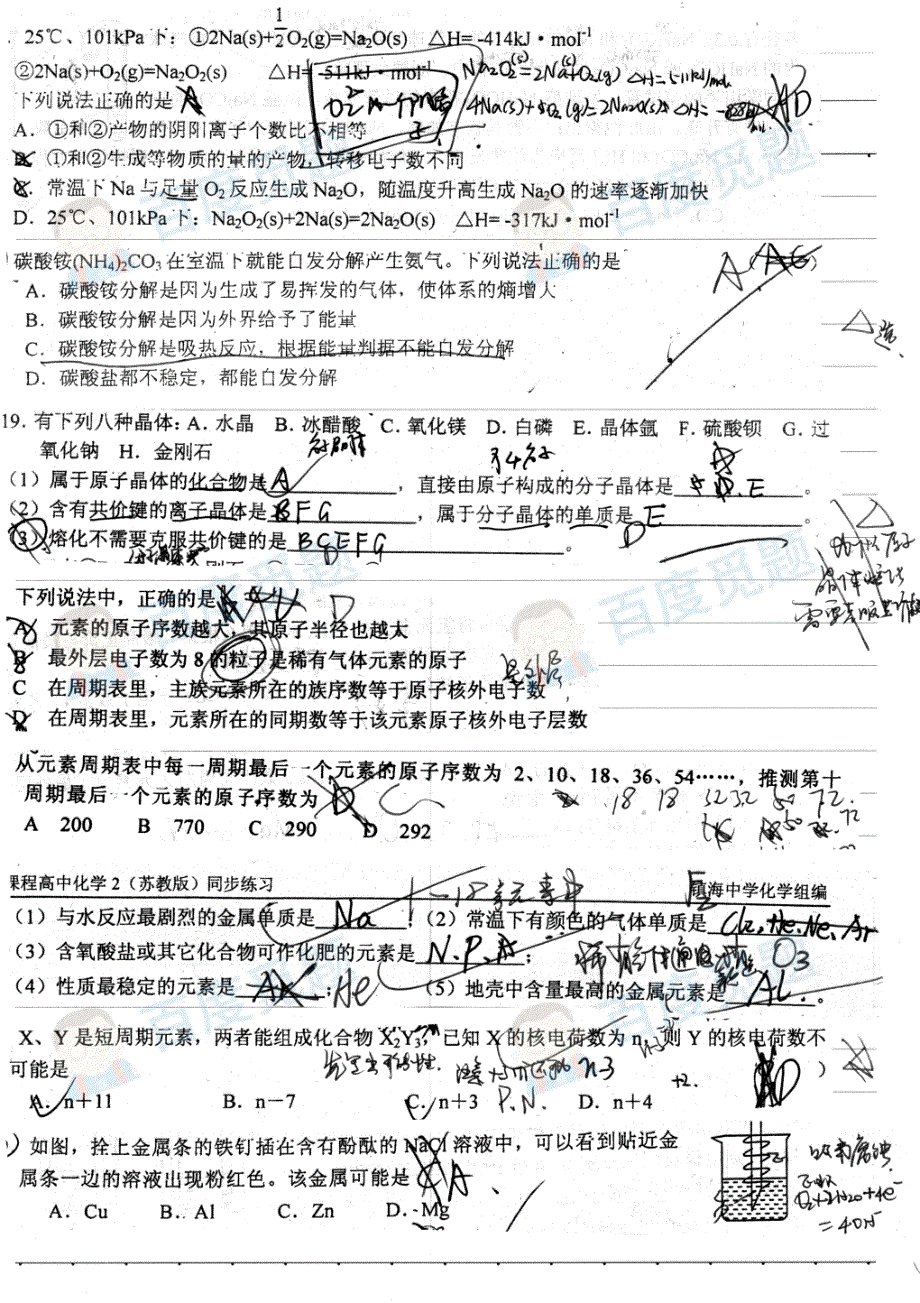 25℃、101kPa 下：①2Na(s)+1/2 O₂(g)=Na₂O(s)　△H= -414kJ·mol⁻¹
②2Na(s)+O₂(g)=Na₂O₂(s)　△H= -511kJ·mol⁻¹
下列说法正确的是
A．①和②产物的阴阳离子个数比不相等
B．①和②生成等物质的量的产物，转移电子数不同
C．常温下 Na 与足量 O₂反应生成 Na₂O，随温度升高生成 Na₂O 的速率逐渐加快
D．25℃、101kPa 下：Na₂O₂(s)+2Na(s)=2Na₂O(s)　△H= -317kJ·mol⁻¹
AD
碳酸铵(NH₄)₂CO₃在室温下就能自发分解产生氨气。下列说法正确的是
A
A．碳酸铵分解是因为生成了易挥发的气体，使体系的熵增大
B．碳酸铵分解是因为外界给予了能量
C．碳酸铵分解是吸热反应，根据能量判据不能自发分解
D．碳酸盐都不稳定，都能自发分解
19．有下列八种晶体：A．水晶　B．冰醋酸　C．氧化镁　D．白磷　E．晶体氩　F．硫酸钡　G．过
氧化钠　H．金刚石
（1）属于原子晶体的化合物是 A ，直接由原子构成的分子晶体是 E 。
（2）含有共价键的离子晶体是 B F G ，属于分子晶体的单质是 D E 。
（3）熔化不需要克服共价键的是 B C D E F G 。
下列说法中，正确的是 D
A　元素的原子序数越大，其原子半径也越大
B　最外层电子数为 8 的粒子是稀有气体元素的原子
最外层
C　在周期表里，主族元素所在的族序数等于原子核外电子数
D　在周期表里，元素所在的同期数等于该元素原子核外电子层数
从元素周期表中每一周期最后一个元素的原子序数为 2、10、18、36、54……，推测第十
周期最后一个元素的原子序数为 C
18 18 32 32 50 72
A　200　B　770　C　290　D　292
课程高中化学 2（苏教版）同步练习　镇海中学化学组编
1-18号元素中
（1）与水反应最剧烈的金属单质是 Na ；（2）常温下有颜色的气体单质是 Cl₂,He,Ne,Ar
（3）含氧酸盐或其它化合物可作化肥的元素是 N.P. ；
O₃
（4）性质最稳定的元素是 He ；（5）地壳中含量最高的金属元素是 Al 。
X、Y 是短周期元素，两者能组成化合物 X₂Y₃，已知 X 的核电荷数为 n，则 Y 的核电荷数不
可能是
A．n＋11　B．n－7　C．n＋3　D．n＋4
P.N.
如图，拴上金属条的铁钉插在含有酚酞的 NaCl 溶液中，可以看到贴近金
属条一边的溶液出现粉红色。该金属可能是 A
A．Cu　B．Al　C．Zn　D．Mg
吸氧腐蚀
O₂+2H₂O+4e⁻
=4OH⁻
百度觅题
百度觅题
百度觅题
百度觅题
百度觅题
百度觅题